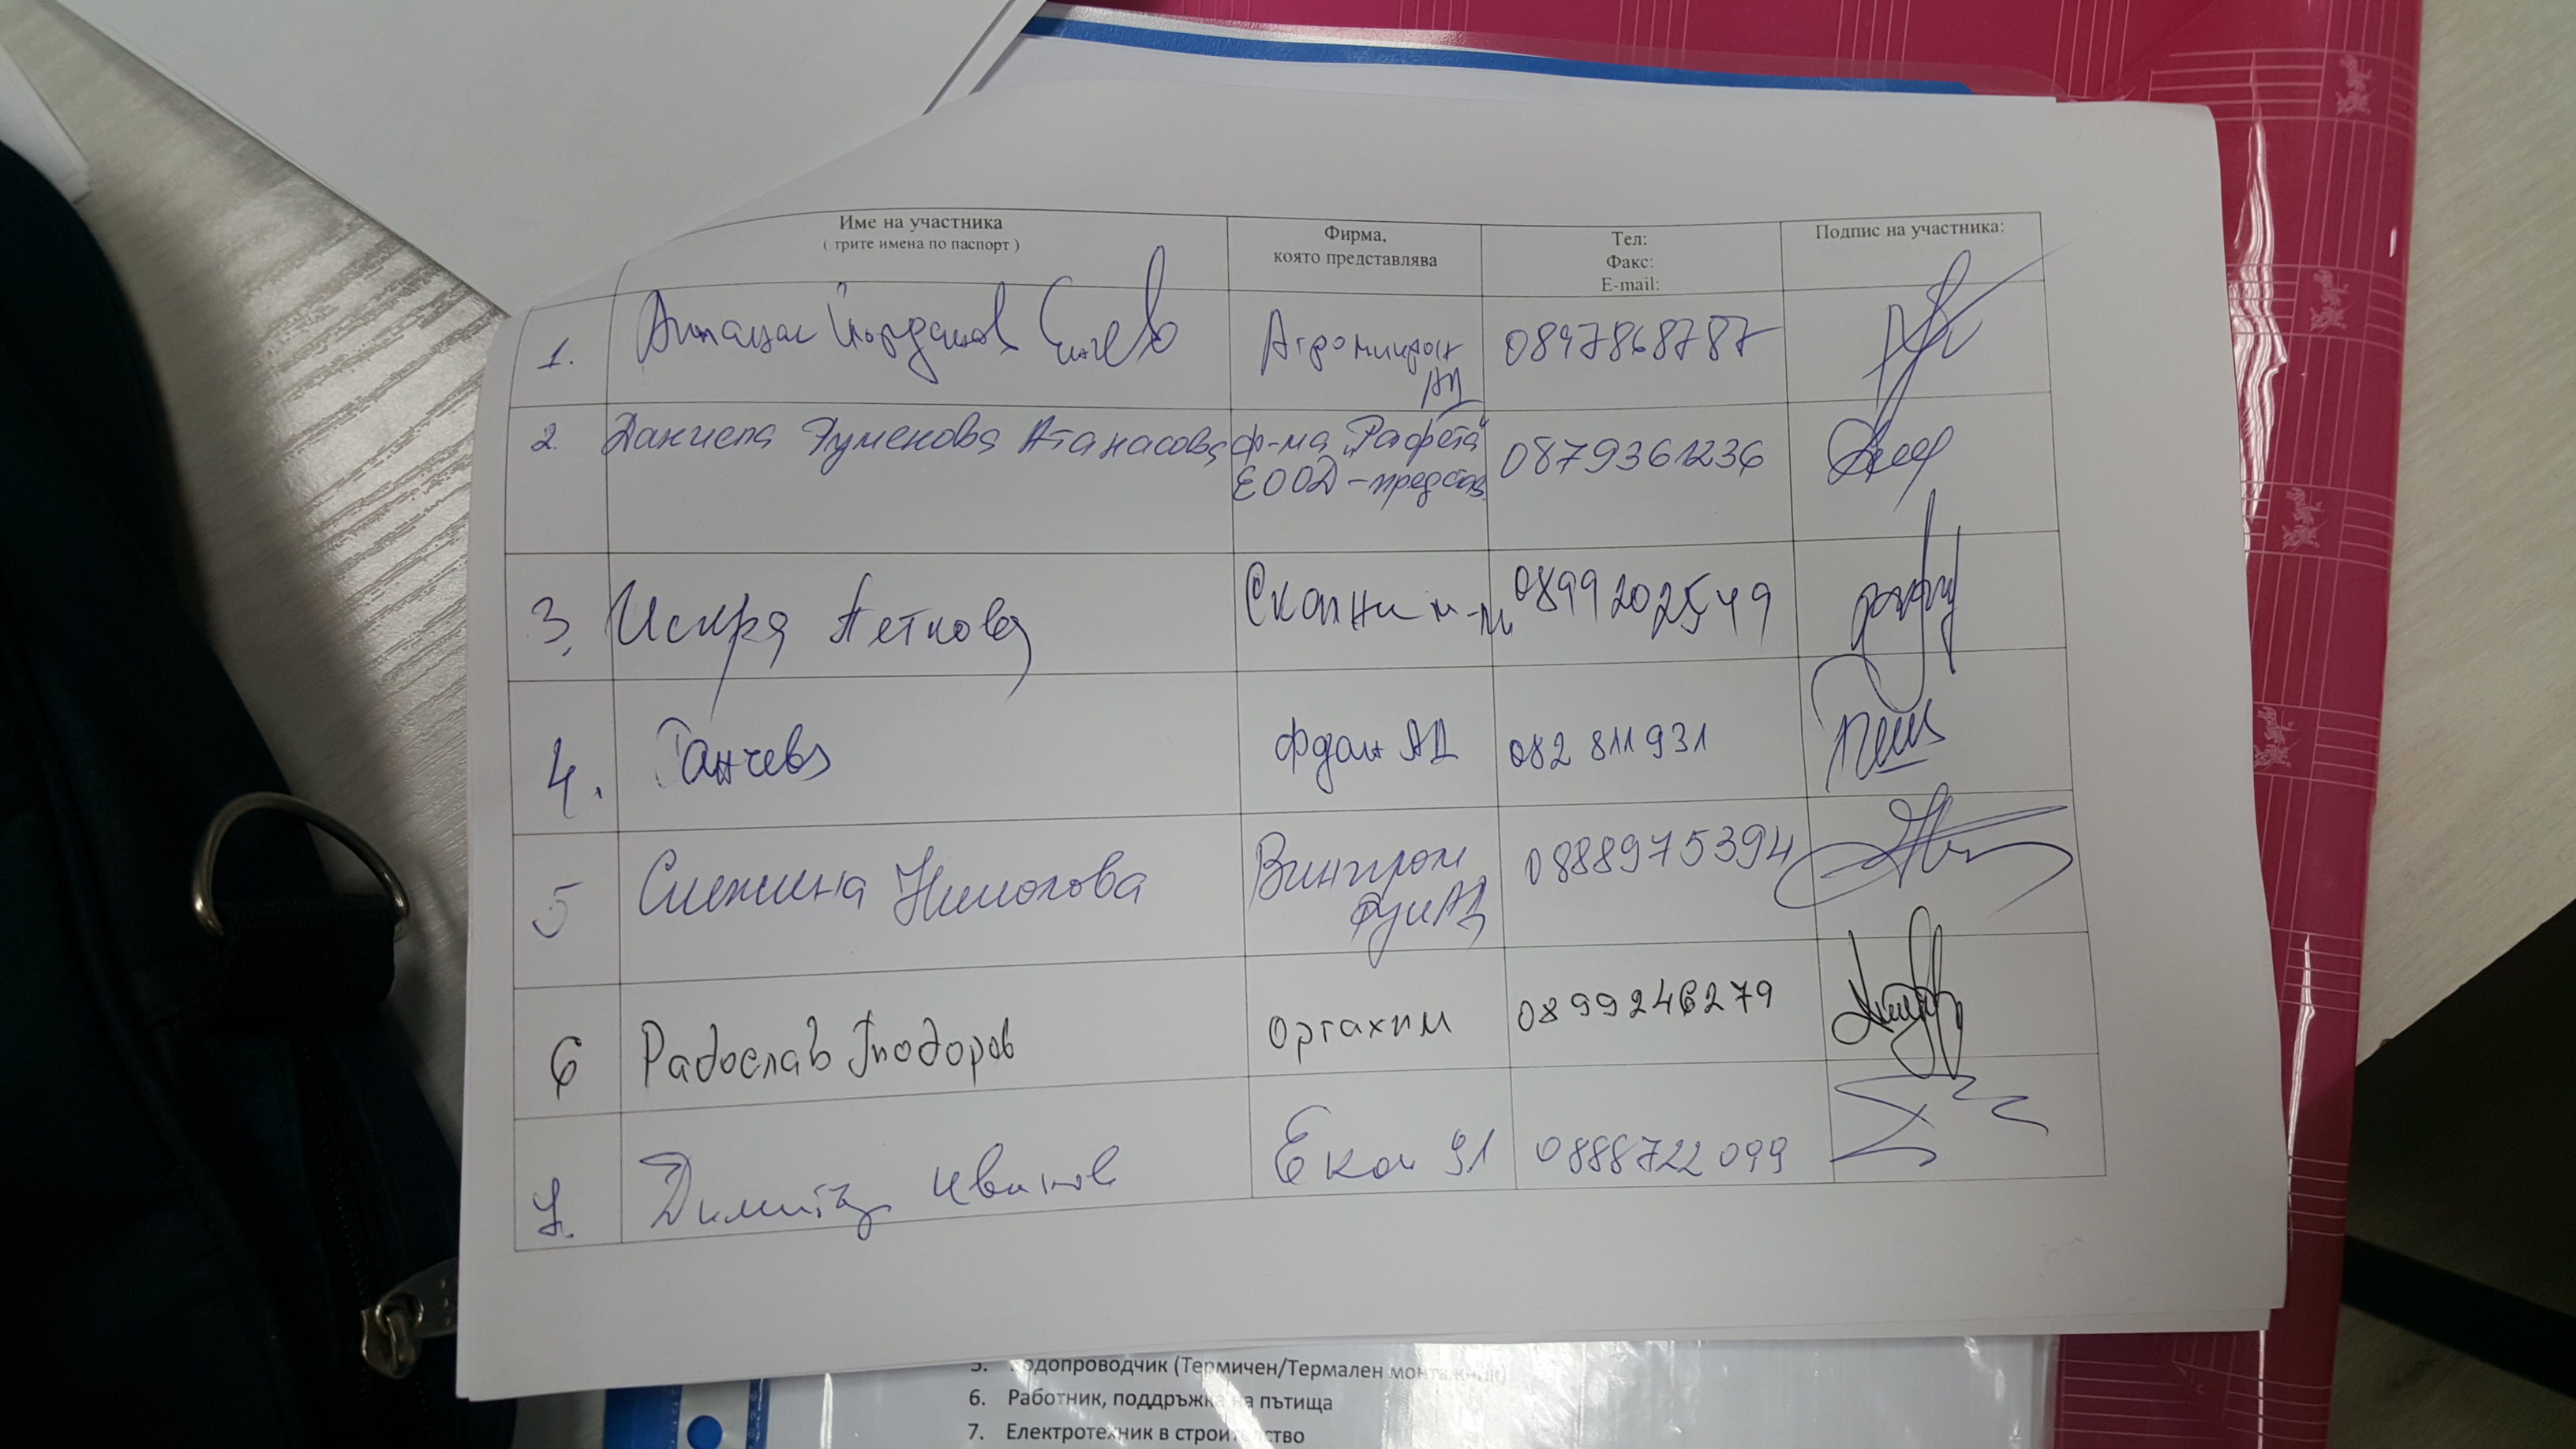 Име на участника
( трите имена по паспорт )
Фирма,
която представлява
Тел:
Факс:
E-mail:
Подпис на участника:
1. Атанас Йорданов Енчев
АД
0897868787
2. Даниела Руменова Атанасова ф-ма "Рафета" 0879361236
ЕООД - представ.
3. Искра Петкова
0899202549
4. Ганчева
АД 082 811931
5 Снежина Николова
0888975394
6 Радослав Теодоров Оргахим 0899246279
7. Димитър Иванов Екон 91 0888722099
5. Водопроводчик (Термичен/Термален монтажник)
6. Работник, поддръжка на пътища
7. Електротехник в строителство